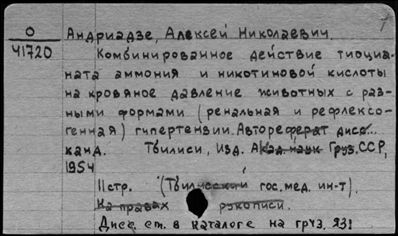 7
О
41720
Андриадзе, Алексей Николаевич.
Комбинированное действие тиоциа-
ната аммония и никотиновой кислоты
на кровяное давление животных с раз-
ными формами (ренальная и рефлексо-
генная) гипертензии. Автореферат дисс...
канд. Тбилиси, Изд. Акад. наук Груз. ССР,
1954
11стр. (Тбилисский гос. мед. ин-т).
На правах рукописи.
Дисс. см. в каталоге на груз. яз!